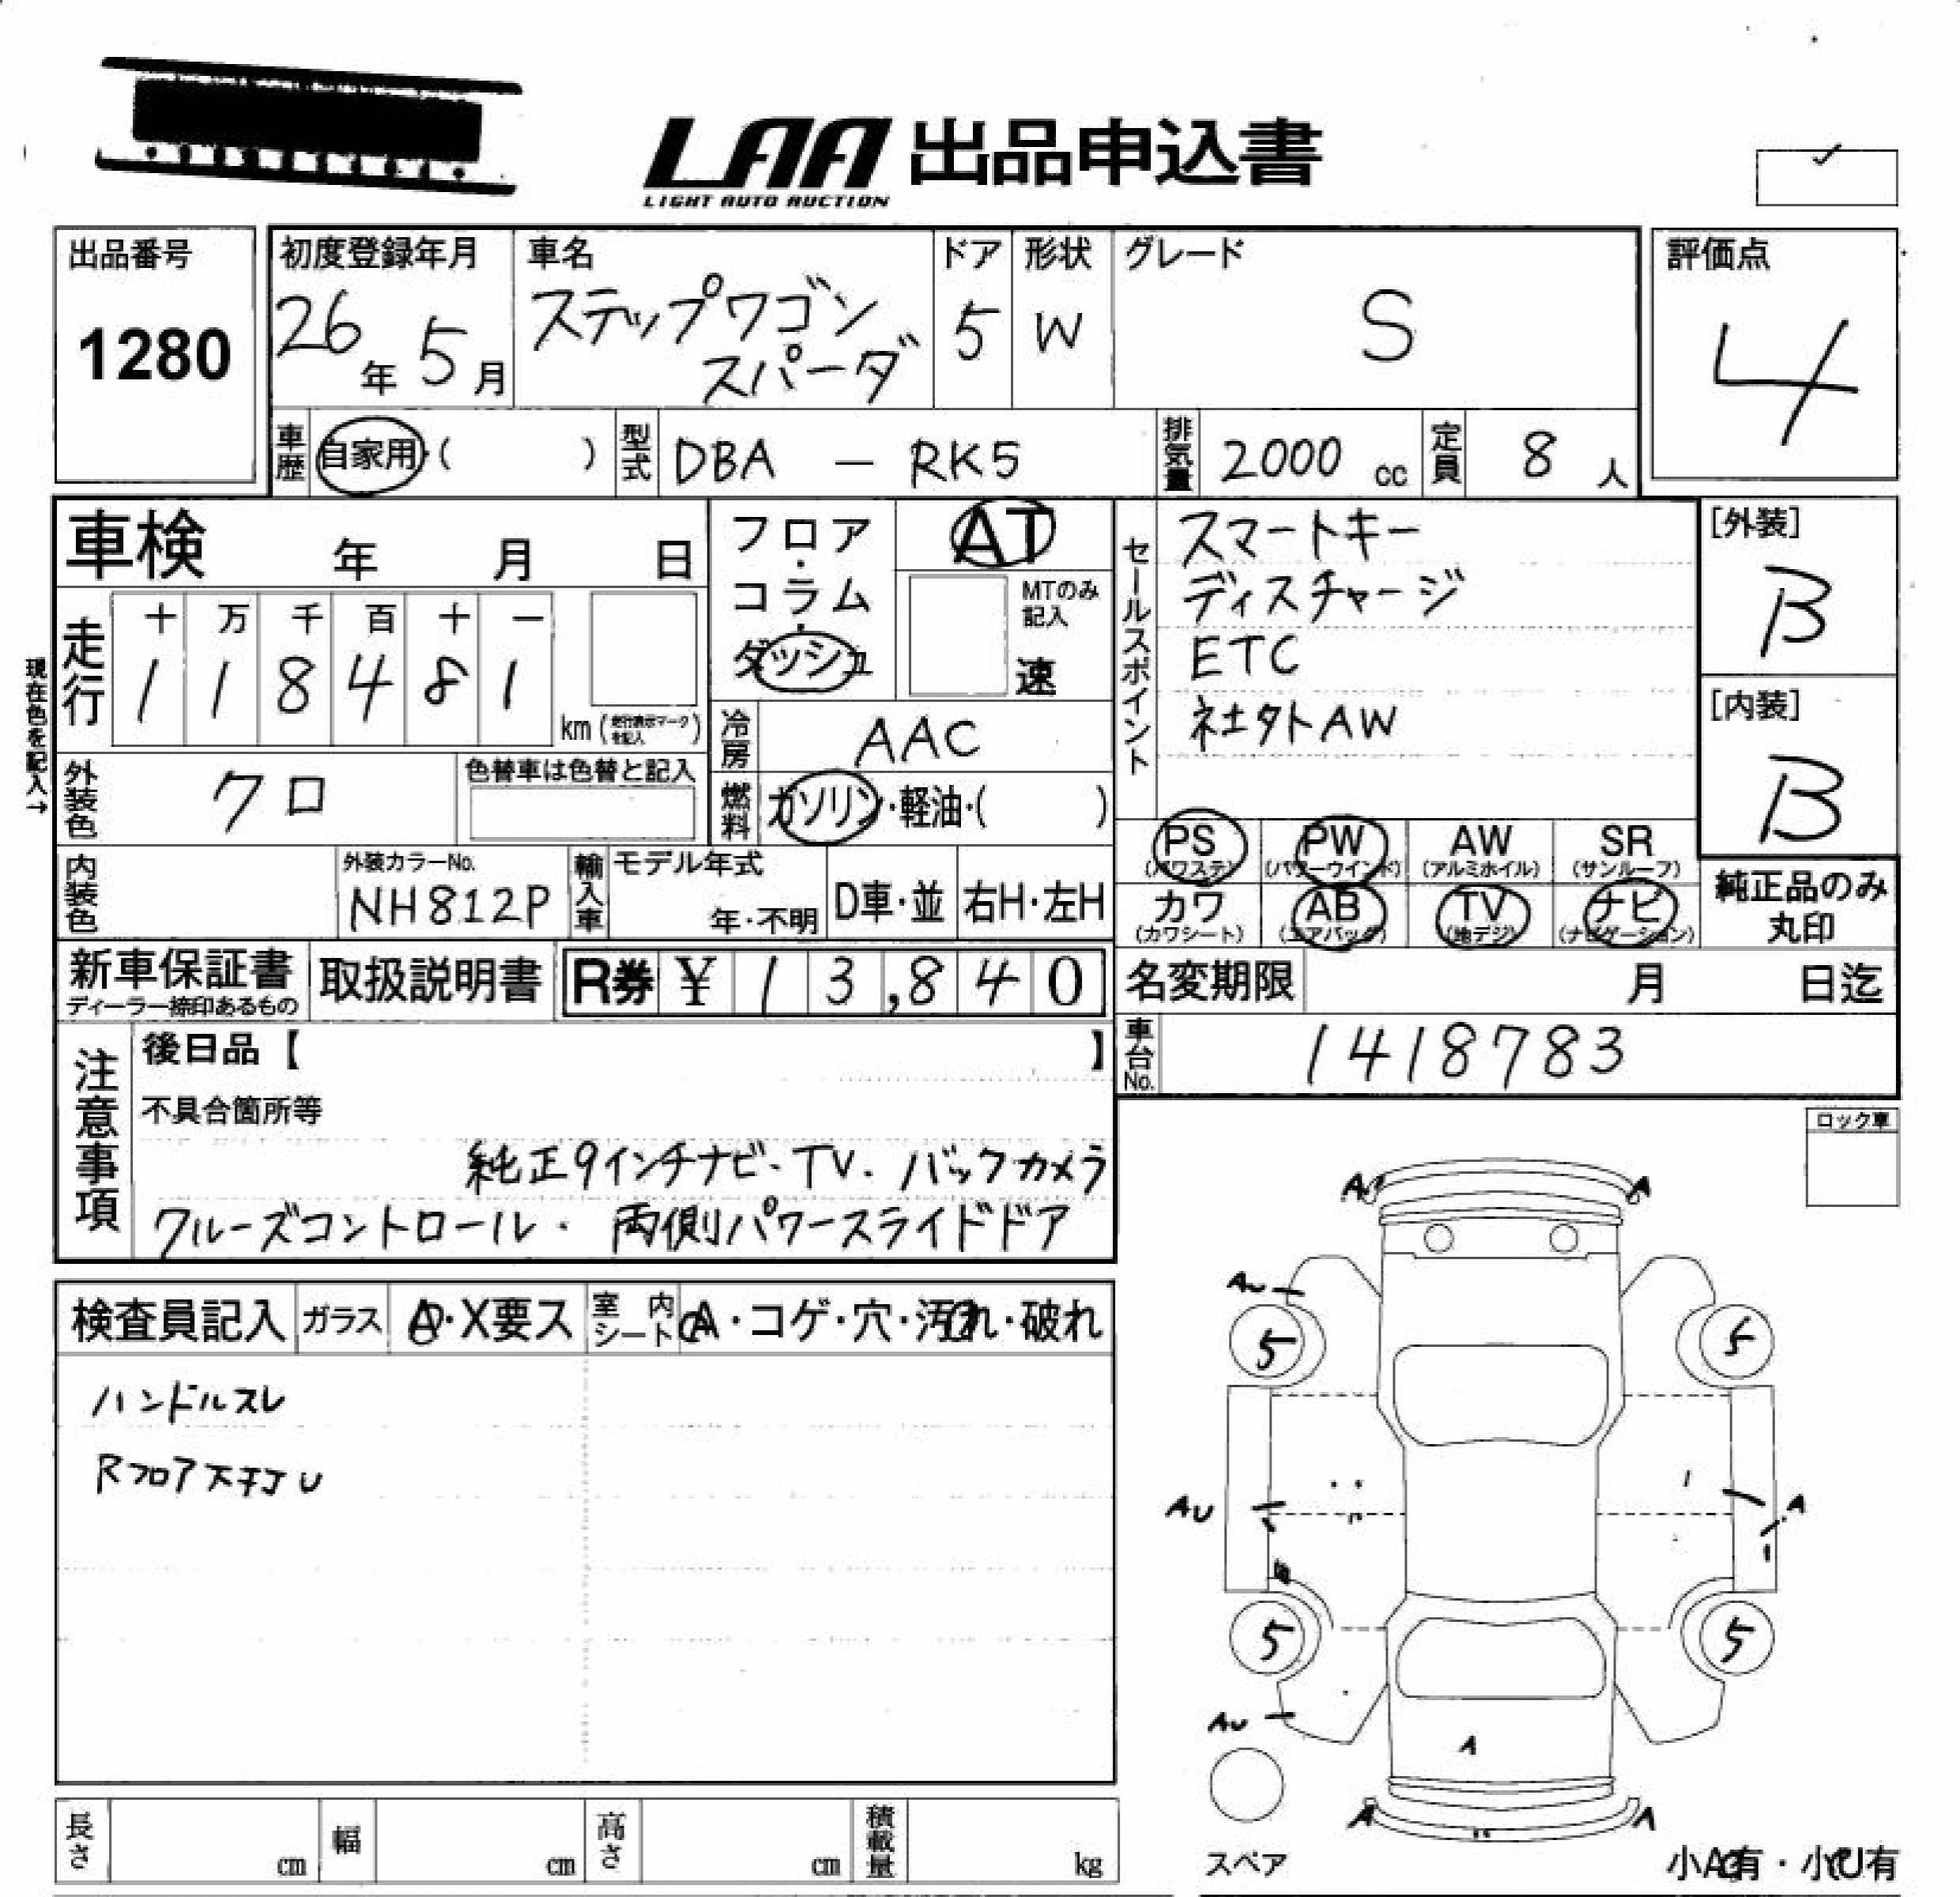 LAA 出品申込書
LIGHT AUTO AUCTION
出品番号
1280
初度登録年月
26年 5月
車名
ステップワゴン
スパーダ
ドア
5
形状
W
グレード
S
評価点
4
車歴 自家用・( )
型式 DBA — RK5
排気量 2000 cc
定員 8 人
車検 年 月 日
現在色を記入→
走行
十 万 千 百 十 一
1 1 8 4 8 1
km (走行表示マークを記入)
フロア・コラム・ダッシュ
AT
MTのみ記入
速
冷房 AAC
燃料 ガソリン・軽油・( )
外装色 クロ
色替車は色替と記入
内装色
外装カラーNo.
NH812P
輸入車
モデル年式
年・不明
D車・並
右H・左H
セールスポイント
スマートキー
ディスチャージ
ETC
社外AW
[外装]
B
[内装]
B
PS (パワステ)
PW (パワーウインド)
AW (アルミホイル)
SR (サンルーフ)
カワ (カワシート)
AB (エアバック)
TV (地デジ)
ナビ (ナビゲーション)
純正品のみ
丸印
新車保証書
ディーラー捺印あるもの
取扱説明書
R券 ¥ 1 3,8 4 0
名変期限 月 日迄
車台No. 1418783
注意事項
後日品【 】
不具合箇所等
純正9インチナビ・TV・バックカメラ
クルーズコントロール・両側パワースライドドア
ロック車
検査員記入
ガラス A・X要ス
室内シート A・コゲ・穴・汚れ・破れ
ハンドルスレ
Rフロア下キズU
A A
AU
5 5
AU A
5 5
AU
A
A A
スペア
小A有・小U有
長さ cm
幅 cm
高さ cm
積載量 kg